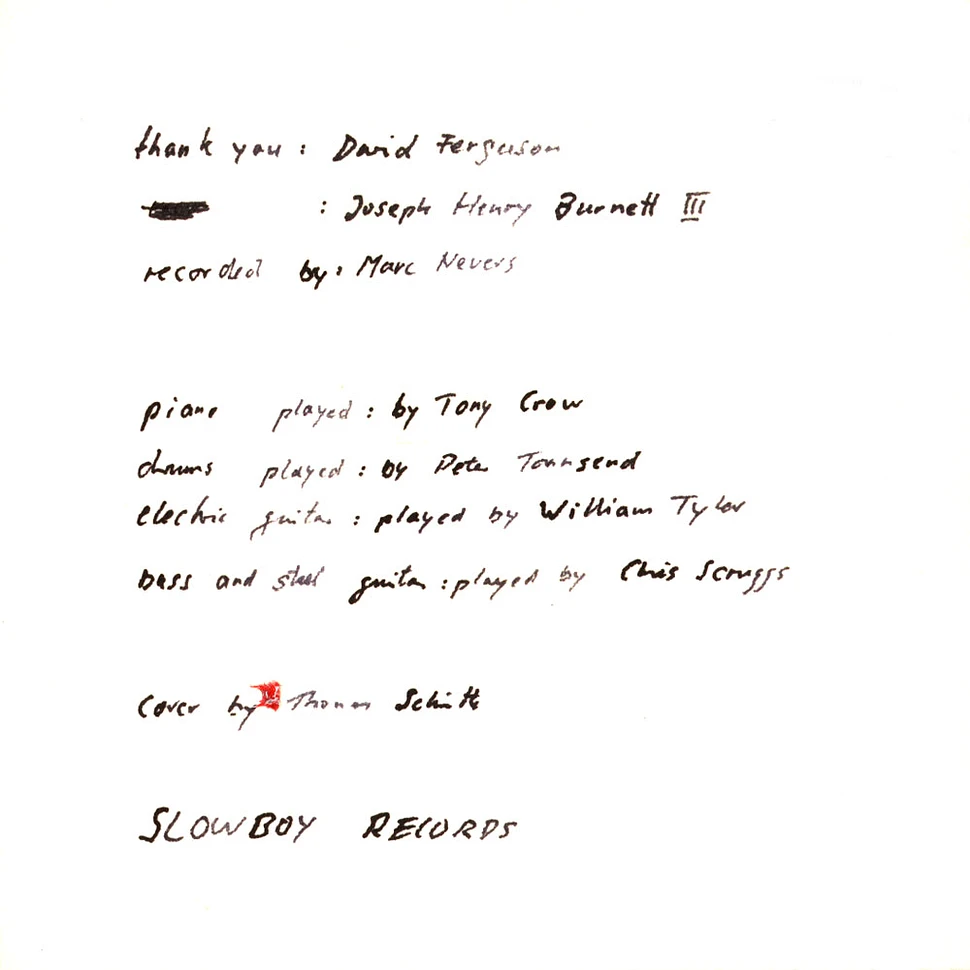 thank you : David Ferguson
: Joseph Henry Burnett III
recorded by : Marc Nevers
piano played : by Tony Crow
drums played : by Peter Townsend
electric guitar : played by William Tyler
bass and steel guitar : played by Chris Scruggs
Cover by Thomas Schütte
SLOWBOY RECORDS